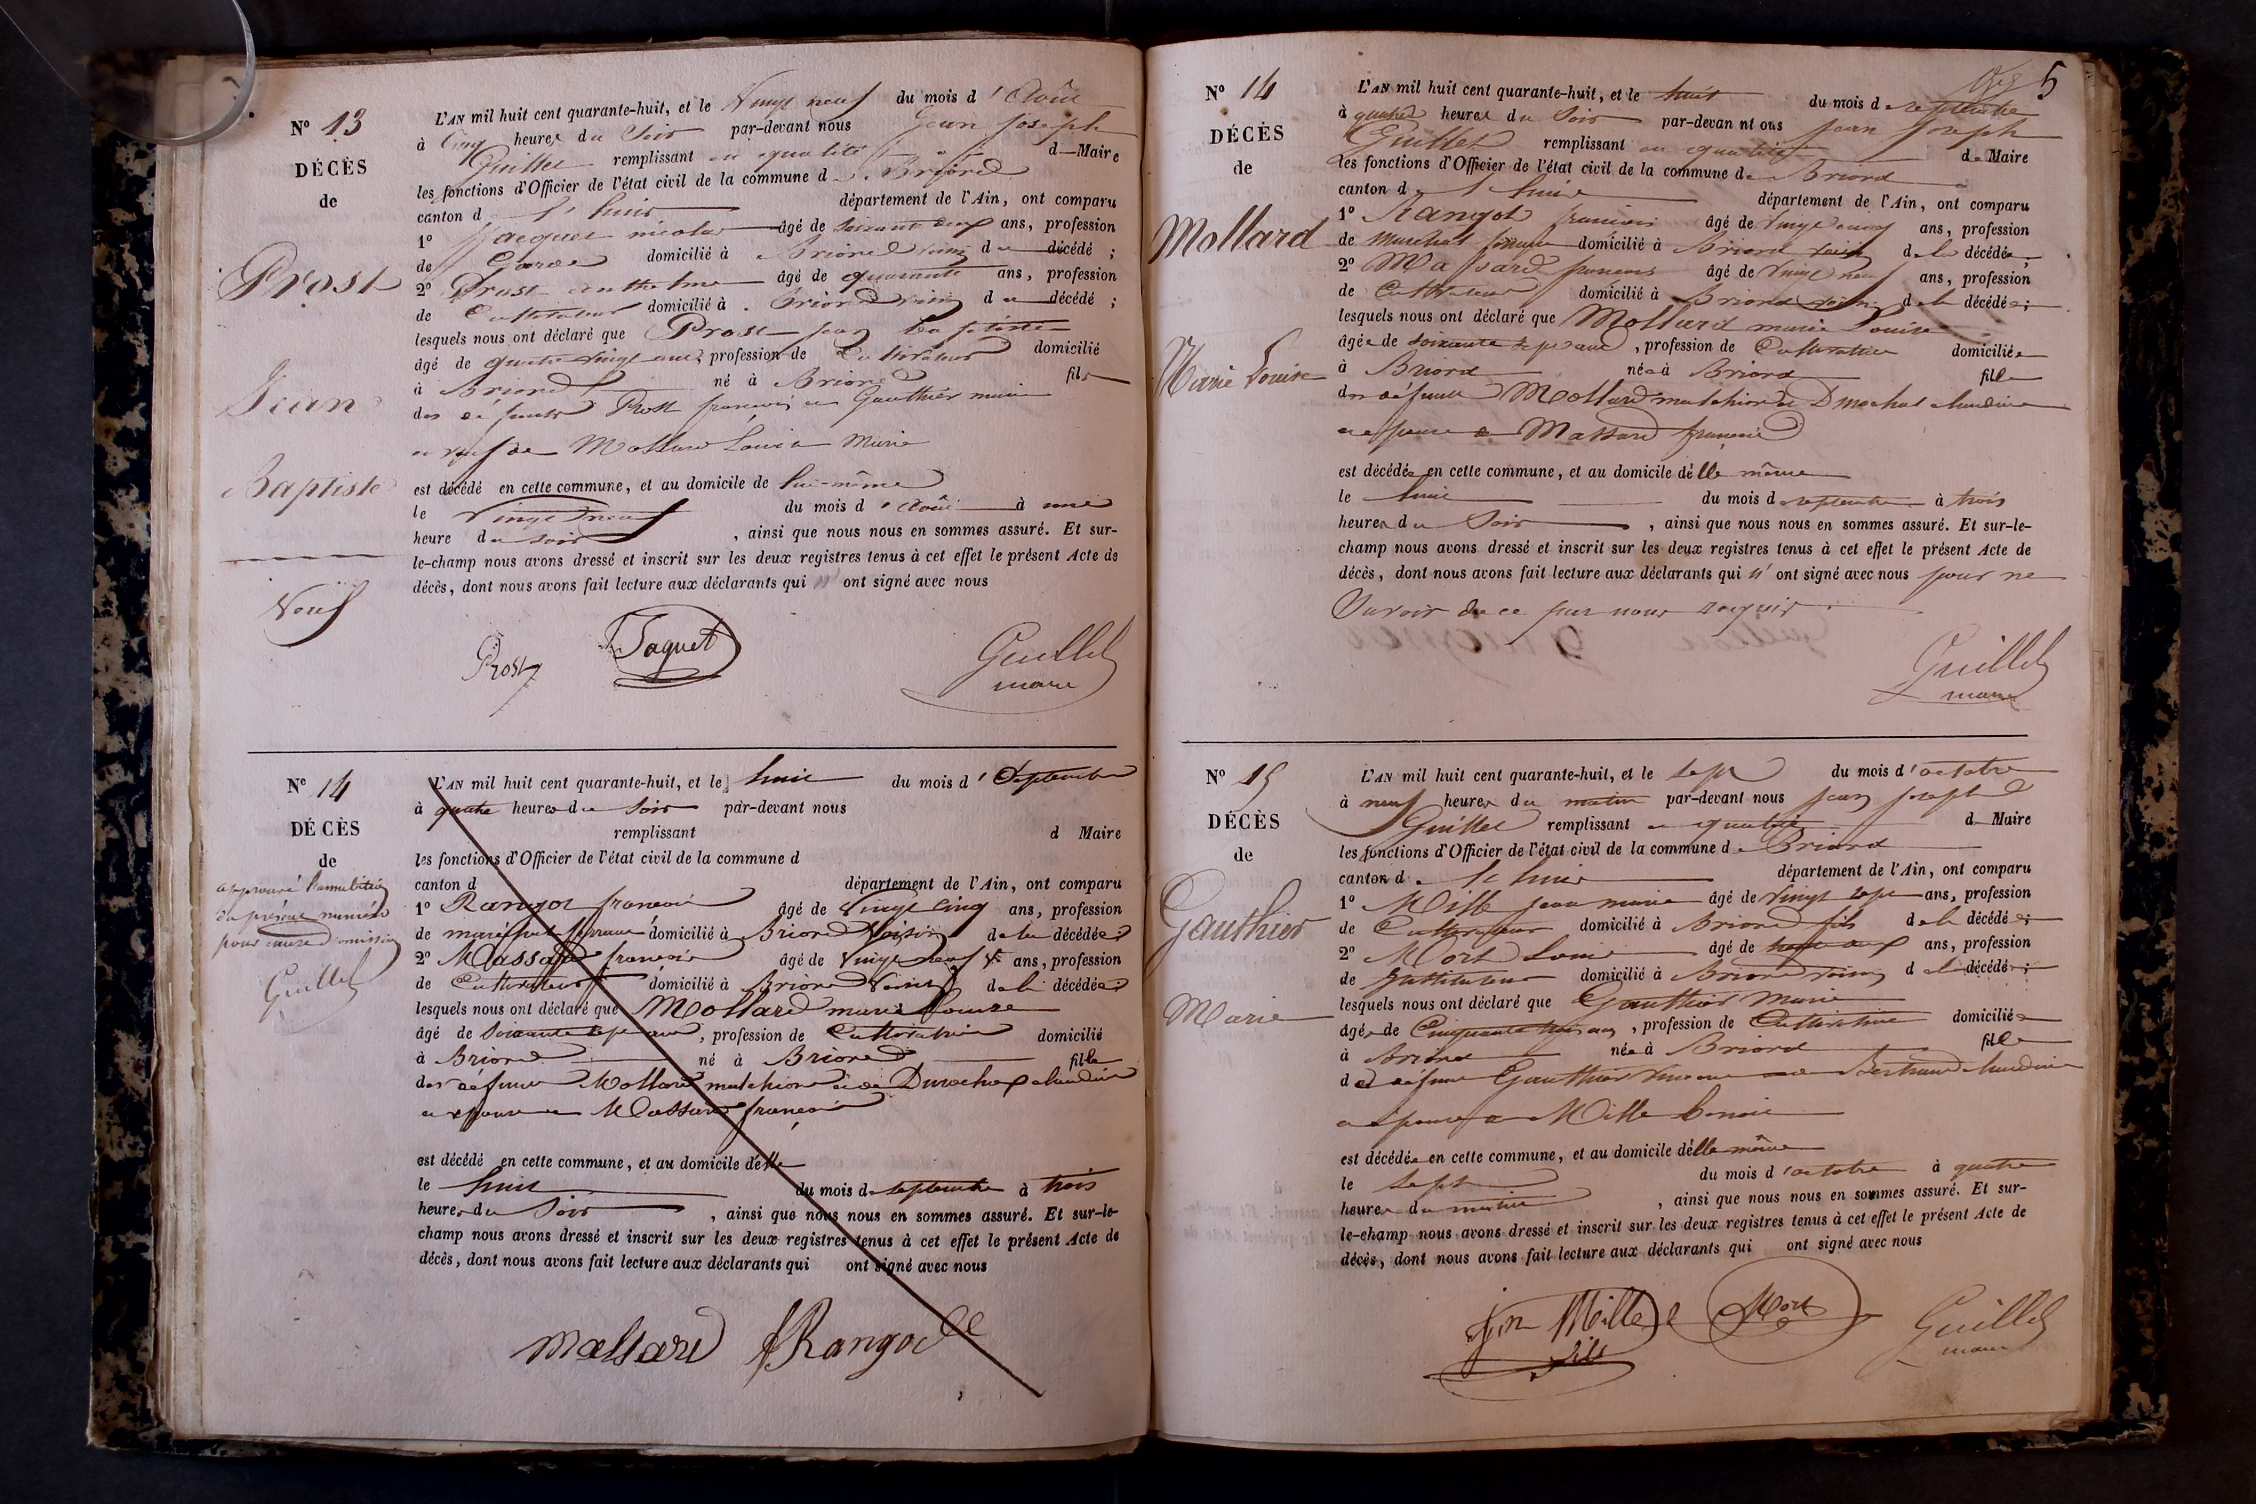 Nº 13
DÉCÈS
de
Prost
Jean
Baptiste
Veuf
L'AN mil huit cent quarante-huit, et le Vingt neuf du mois d'Août
à Cinq heures du Soir par-devant nous Jean Joseph
Guillet remplissant en qualité de Maire
les fonctions d'Officier de l'état civil de la commune de Briord
canton de l'huis département de l'Ain, ont comparu
1º Jacquet nicolas âgé de soixante deux ans, profession
de Garde domicilié à Briord voisin du décédé ;
2º Prost anthelme âgé de quarante ans, profession
de Cultivateur domicilié à Briord voisin du décédé ;
lesquels nous ont déclaré que Prost jean baptiste
âgé de quatre vingt ans, profession de Cultivateur domicilié
à Briord né à Briord fils
des défunts Prost françois et Gauthier marie
et veuf de Mollard Louise Marie
est décédé en cette commune, et au domicile de lui-même
le Vingt neuf du mois d'Août à une
heure du soir, ainsi que nous nous en sommes assuré. Et sur-
le-champ nous avons dressé et inscrit sur les deux registres tenus à cet effet le présent Acte de
décès, dont nous avons fait lecture aux déclarants qui ont signé avec nous
Prost Jaquet Guillet
maire
Nº 14
DÉCÈS
de
approuvé l'annulation
du présent numéro
pour cause d'omission
Guillet
L'AN mil huit cent quarante-huit, et le huit du mois d'Septembre
à quatre heures du soir par-devant nous
remplissant d Maire
les fonctions d'Officier de l'état civil de la commune d
canton d département de l'Ain, ont comparu
1º Rangot françois âgé de Vingt Cinq ans, profession
de maréchal ferrant domicilié à Briord Voisin de la décédée ;
2º Massard françois âgé de Vingt neuf ans, profession
de Cultivateur domicilié à Briord Voisin de la décédée ;
lesquels nous ont déclaré que Mollard marie Louise
âgé de Soixante sept ans, profession de Cultivatrice domicilié
à Briord né à Briord fille
des défunts Mollard malchior et de Durochat claudine
et épouse de Massard françois
est décédé en cette commune, et au domicile d'elle
le huit du mois de septembre à trois
heures du Soir, ainsi que nous nous en sommes assuré. Et sur-le-
champ nous avons dressé et inscrit sur les deux registres tenus à cet effet le présent Acte de
décès, dont nous avons fait lecture aux déclarants qui ont signé avec nous
massard fRangot
5
Nº 14
DÉCÈS
de
Mollard
Marie Louise
L'AN mil huit cent quarante-huit, et le huit du mois de septembre
à quatre heures du Soir par-devan nt ous Jean Joseph
Guillet remplissant en qualité de Maire
les fonctions d'Officier de l'état civil de la commune de Briord
canton de l'huis département de l'Ain, ont comparu
1º Rangot françois âgé de Vingt cinq ans, profession
de marechal ferrant domicilié à Briord voisin de la décédée ;
2º Massard françois âgé de Vingt neuf ans, profession
de Cultivateur domicilié à Briord voisin de la décédée ;
lesquels nous ont déclaré que Mollard marie Louise
âgée de soixante sept ans, profession de Cultivatrice domiciliée
à Briord née à Briord fille
des défunts Mollard malchior et Durochat claudine
et épouse de Massard françois
est décédée en cette commune, et au domicile d'elle même
le huit du mois de septembre à trois
heures du Soir, ainsi que nous nous en sommes assuré. Et sur-le-
champ nous avons dressé et inscrit sur les deux registres tenus à cet effet le présent Acte de
décès, dont nous avons fait lecture aux déclarants qui n'ont signé avec nous pour ne
Savoir de ce par nous requis
Guillet
maire
Nº 15
DÉCÈS
de
Gauthier
Marie
L'AN mil huit cent quarante-huit, et le sept du mois d'octobre
à neuf heures du matin par-devant nous jean joseph
Guillet remplissant en qualité de Maire
les fonctions d'Officier de l'état civil de la commune de Briord
canton de l'huis département de l'Ain, ont comparu
1º Mille jean marie âgé de Vingt sept ans, profession
de Cultivateur domicilié à Briord fils de la décédée ;
2º Mort Louis âgé de ans, profession
de Instituteur domicilié à Briord voisin de la décédée ;
lesquels nous ont déclaré que Gauthier Marie
âgée de Cinquante trois ans, profession de Cultivatrice domiciliée
à Briord née à Briord fille
des défunts Gauthier et de Bertrand claudine
et épouse de Mille benoit
est décédée en cette commune, et au domicile d'elle même
le sept du mois d'octobre à quatre
heures du matin, ainsi que nous nous en sommes assuré. Et sur-
le-champ nous avons dressé et inscrit sur les deux registres tenus à cet effet le présent Acte de
décès, dont nous avons fait lecture aux déclarants qui ont signé avec nous
jn Mille Mort Guillet
fils maire